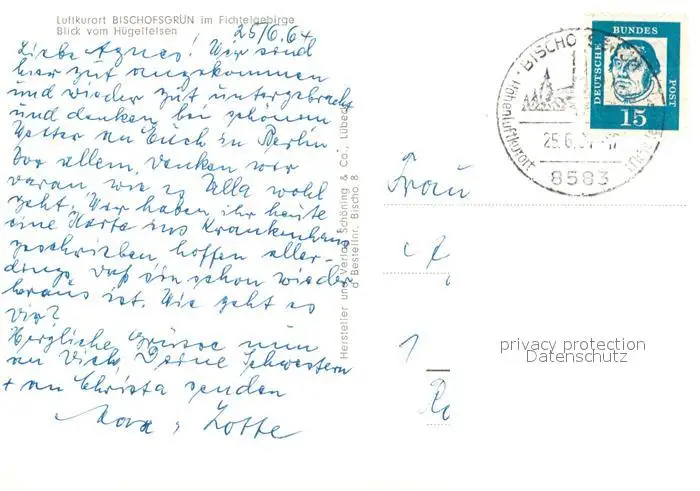 Luftkurort BISCHOFSGRÜN im Fichtelgebirge
Blick vom Hügelfelsen
25/6.64
Liebe Agnes! Wir sind
hier gut angekommen
und wieder gut untergebracht
und denken bei schönem
Wetter an Euch in Berlin.
Vor allem denken wir
daran, wie es Ulla wohl
geht. Wir haben ihr heute
eine Karte ins Krankenhaus
geschrieben, hoffen aller-
dings, daß sie schon wieder
heraus ist. Wie geht es
Dir?
Herzliche Grüsse nun
an Dich, Deine Schwestern
+ an Christa senden
Lotte
Hersteller und Verlag Schöning & Co., Lübeck
Bestellnr. Bischo 8
BISCHO
Höhenluftkurort
25.6.64
8583
DEUTSCHE BUNDES POST
15
Frau
privacy protection
Datenschutz